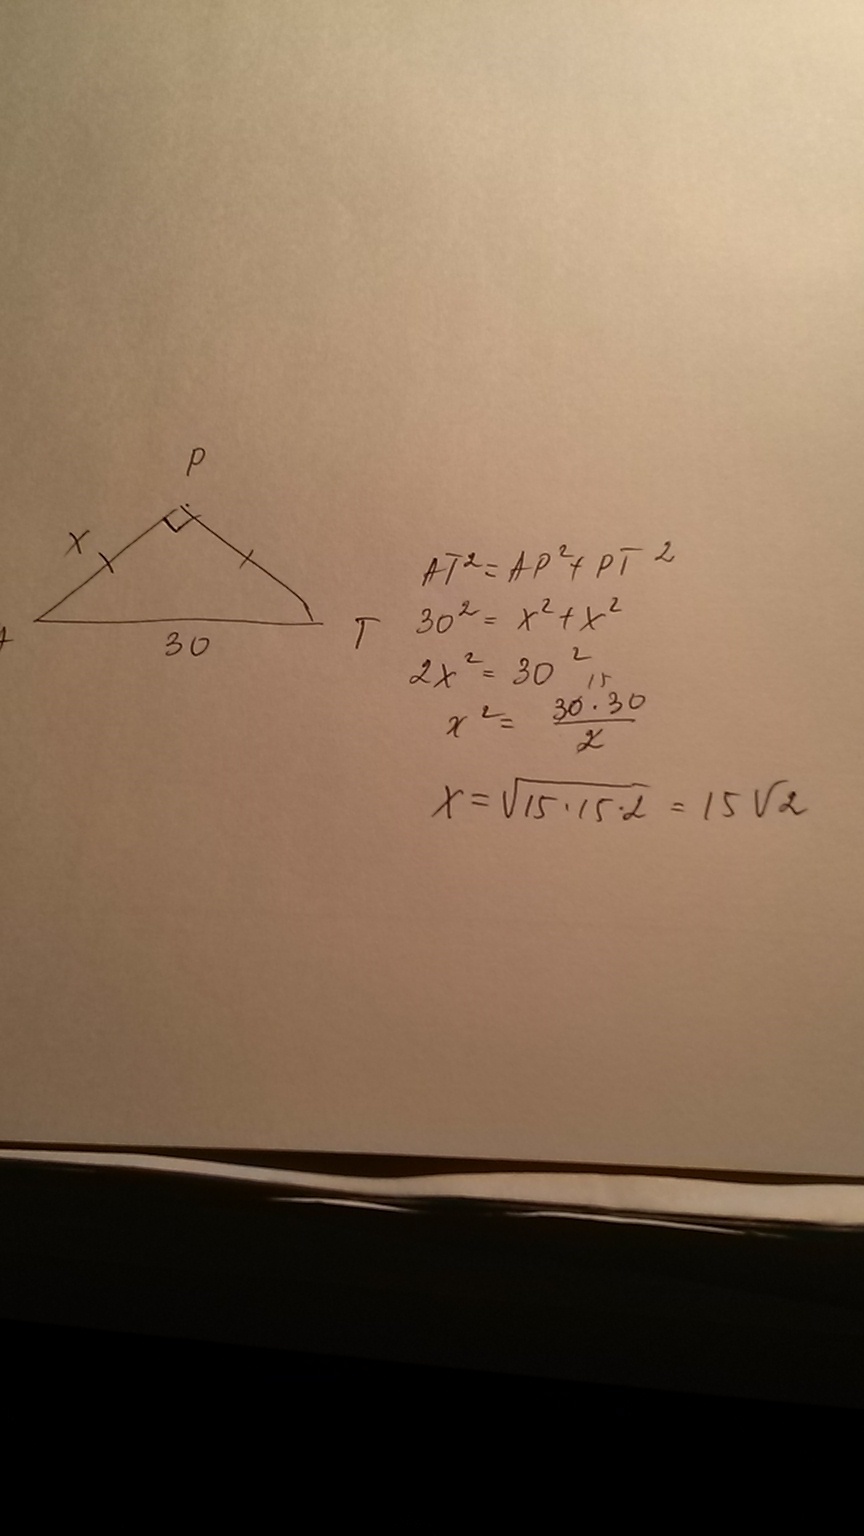 P
X
30
T
AT² = AP² + PT²
30² = x² + x²
2x² = 30²
15
x² = 30·30/2
X = √15·15·2 = 15√2